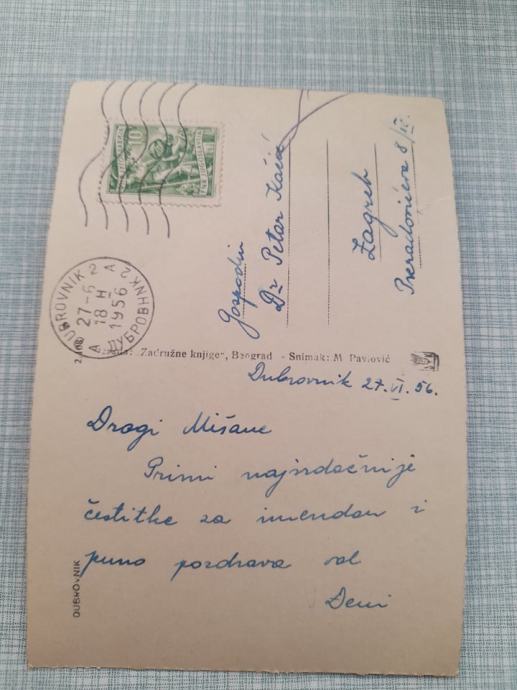 Dubrovnik 27.VI.56.
Dragi Mišane
Primi najsrdačnije
čestitke za imendan i
puno pozdrava od
Deni
DUBROVNIK
"Zadružne knjige", Beograd - Snimak: M. Pavlović
Gospodin
Dr Petar Kačić
Zagreb
Preradovićeva 8/III.
DUBROVNIK 2
A
27-6
18 H
1956
A
ДУБРОВНИК 2
10